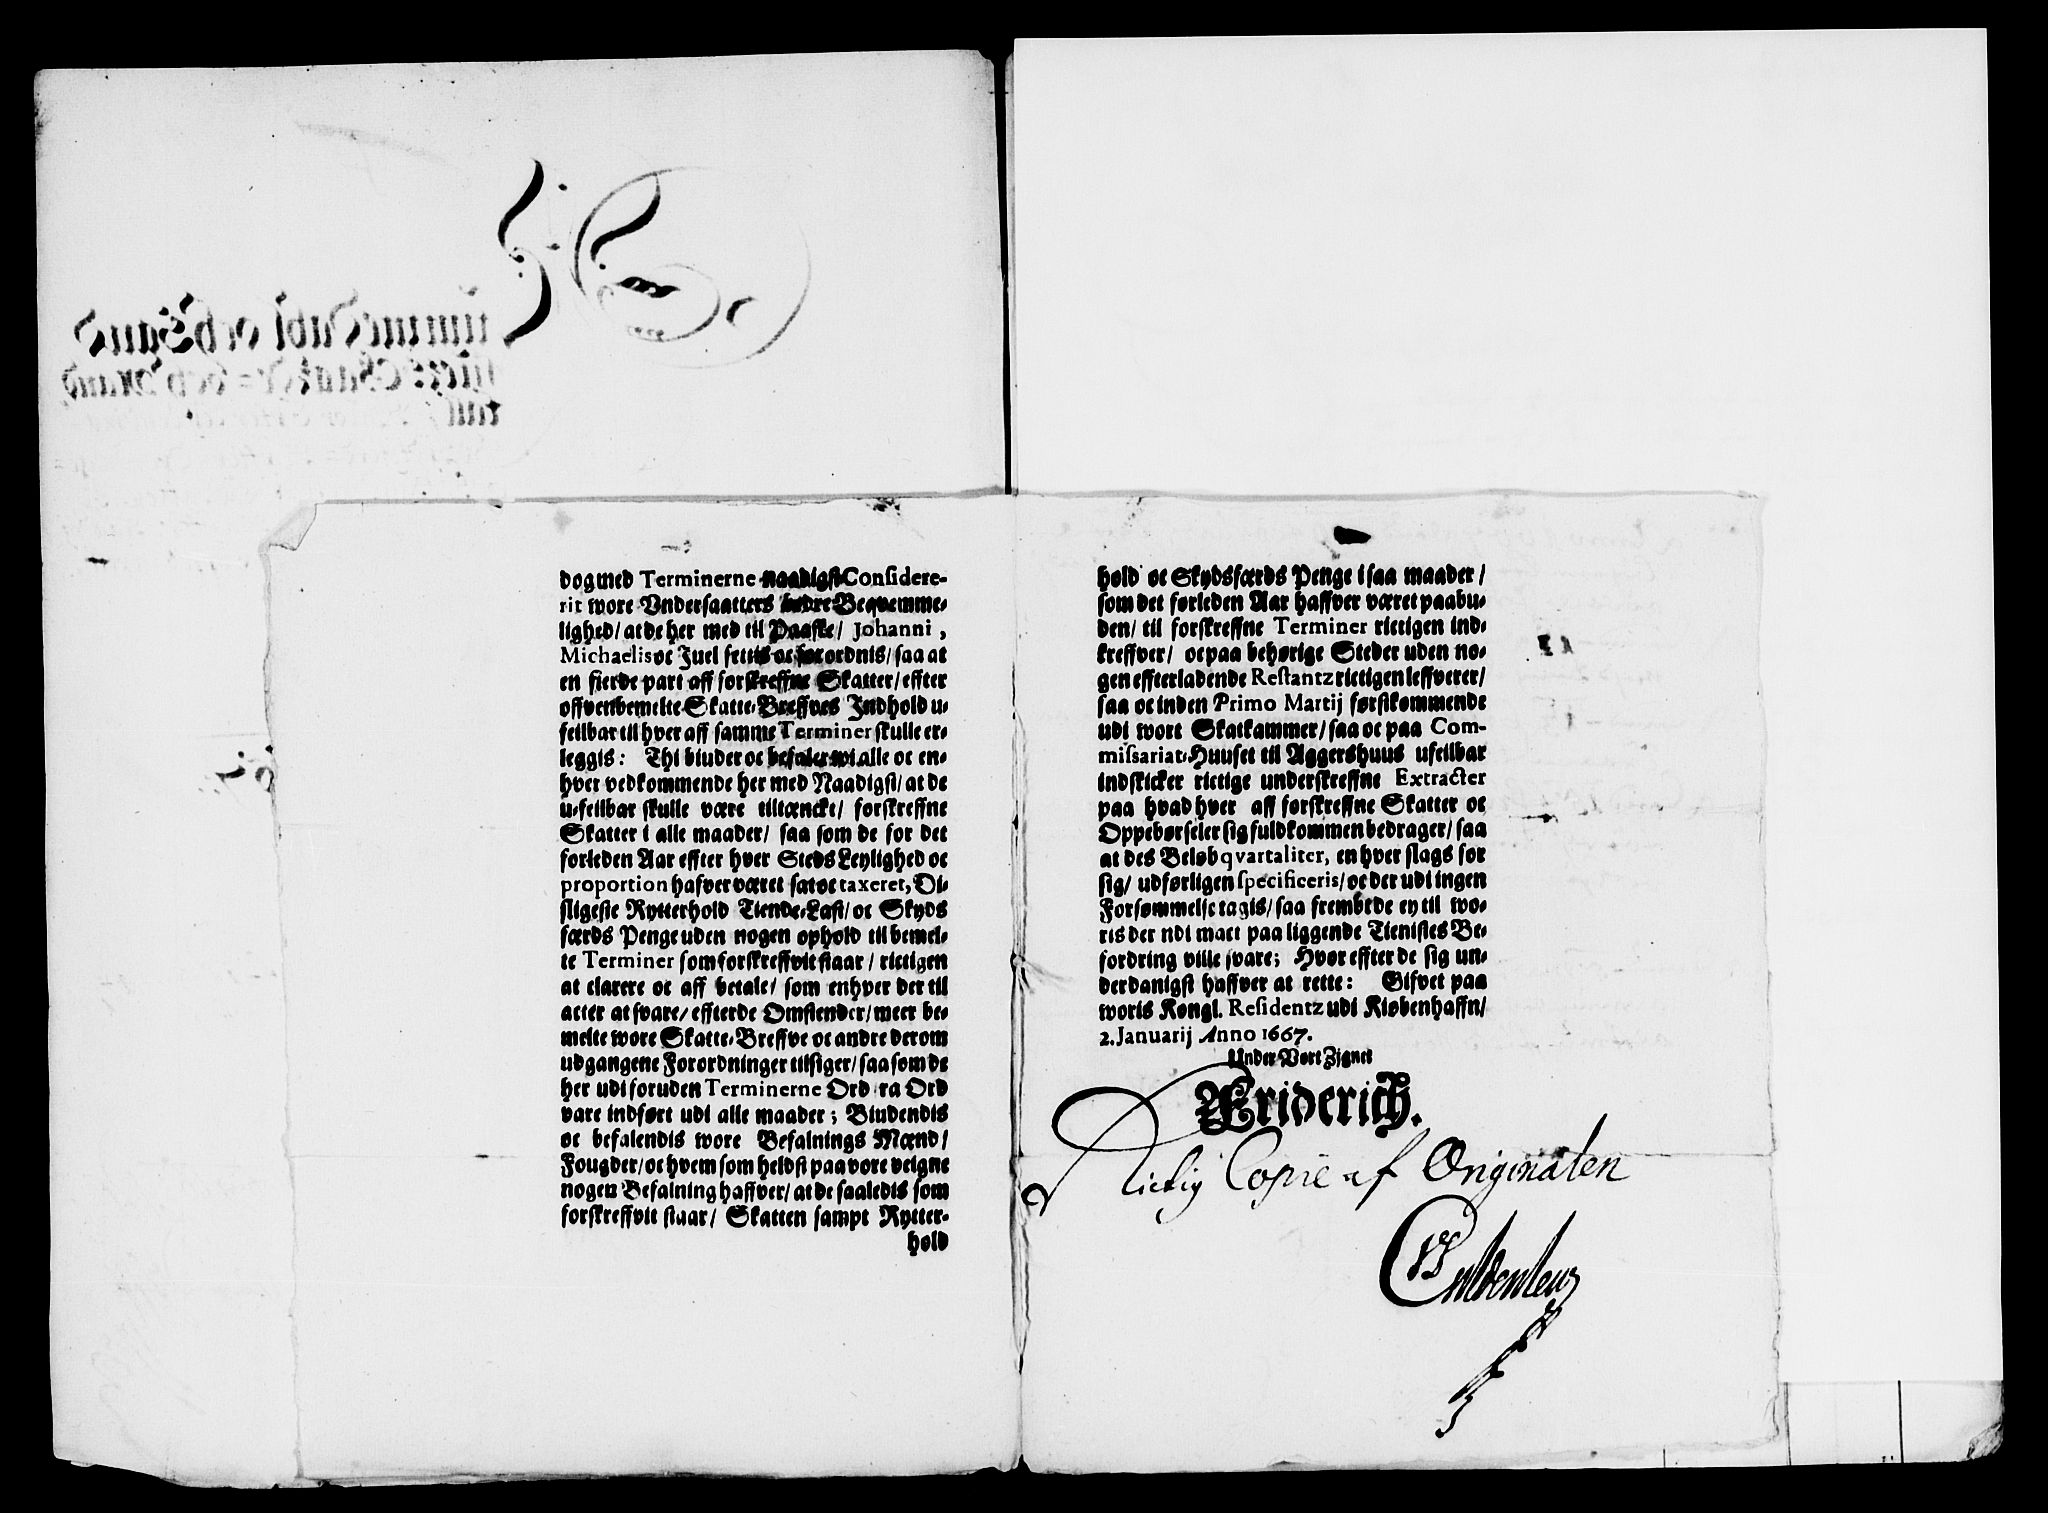 dog med Terminerne naadigst Considere-
rit wore Vndersaatters bedre Beqvemme-
lighed/ at de her med til Paaske/ Johanni,
Michaelis oc Juel settis oc forordnis/ saa at
en fierde part aff forskreffne Skatter/ effter
offvenbemelte Skatte-Breffves Jndhold u-
feilbar til hver aff samme Terminer skulle er-
leggis: Thi biuder oc befaler wi alle oc en-
hver vedkommende her med Naadigst/ at de
u-feilbar skulle være tiltænckt/ forskreffne
Skatter i alle maader/ saa som de for det
forleden Aar effter hver Steds Leylighed oc
proportion hafver været sat oc taxeret, Di-
sligeste Rytterhold Tiende-Last/ oc Skyds
færds Penge uden nogen ophold til bemel-
te Terminer som forskreffvit staar/ rictigen
at clarere oc aff betale/ som enhver der til
atter at svare/ effter de Omstender/ meer be-
melte wore Skatte-Breffve oc andre derom
udgangene Forordninger tilsiger/ saa som de
her udi foruden Terminerne Ord ra Ord
vare indført udi alle maader; Biudendis
oc befalendis wore Befalnings Mænd/
Fougder/ oc hvem som heldst paa vore veigne
nogen Befalning haffver/ at de saaledis som
forskreffvit staar/ Skatten sampt Rytter-
hold
hold oc Skydsfærds Penge i saa maader/
som det førleden Aar haffver været paabu-
den/ til forskreffne Terminer rictigen ind-
kreffver/ oc paa behørige Steder uden no-
gen effterladende Restantz rictigen leffverer/
saa oc inden Primo Martij førstkommende
udi wort Skatkammer/ saa oc paa Com-
missariat-Huuset til Aggershuus ufeilbar
indskicker rictige underskreffne Extracter
paa hvad hver aff forskreffne Skatter oc
Oppebørseler sig fuldkommen bedrager/ saa
at des Beløb qvartaliter, en hver slags for
sig/ udførligen specificeris/ oc der udi ingen
Forsømmelse tagis/ saa frembt de ey til wo-
ris der udi mact paa liggende Tienistes Be-
fordring ville svare; Hvor effter de sig un-
derdanigst haffver at rette: Gifvet paa
woris Kongl. Residentz udi Kiøbenhaffn/
2. Januarij Anno 1667.
Under Vort Zignet
Friderich.
Rictig Copie af Originalen